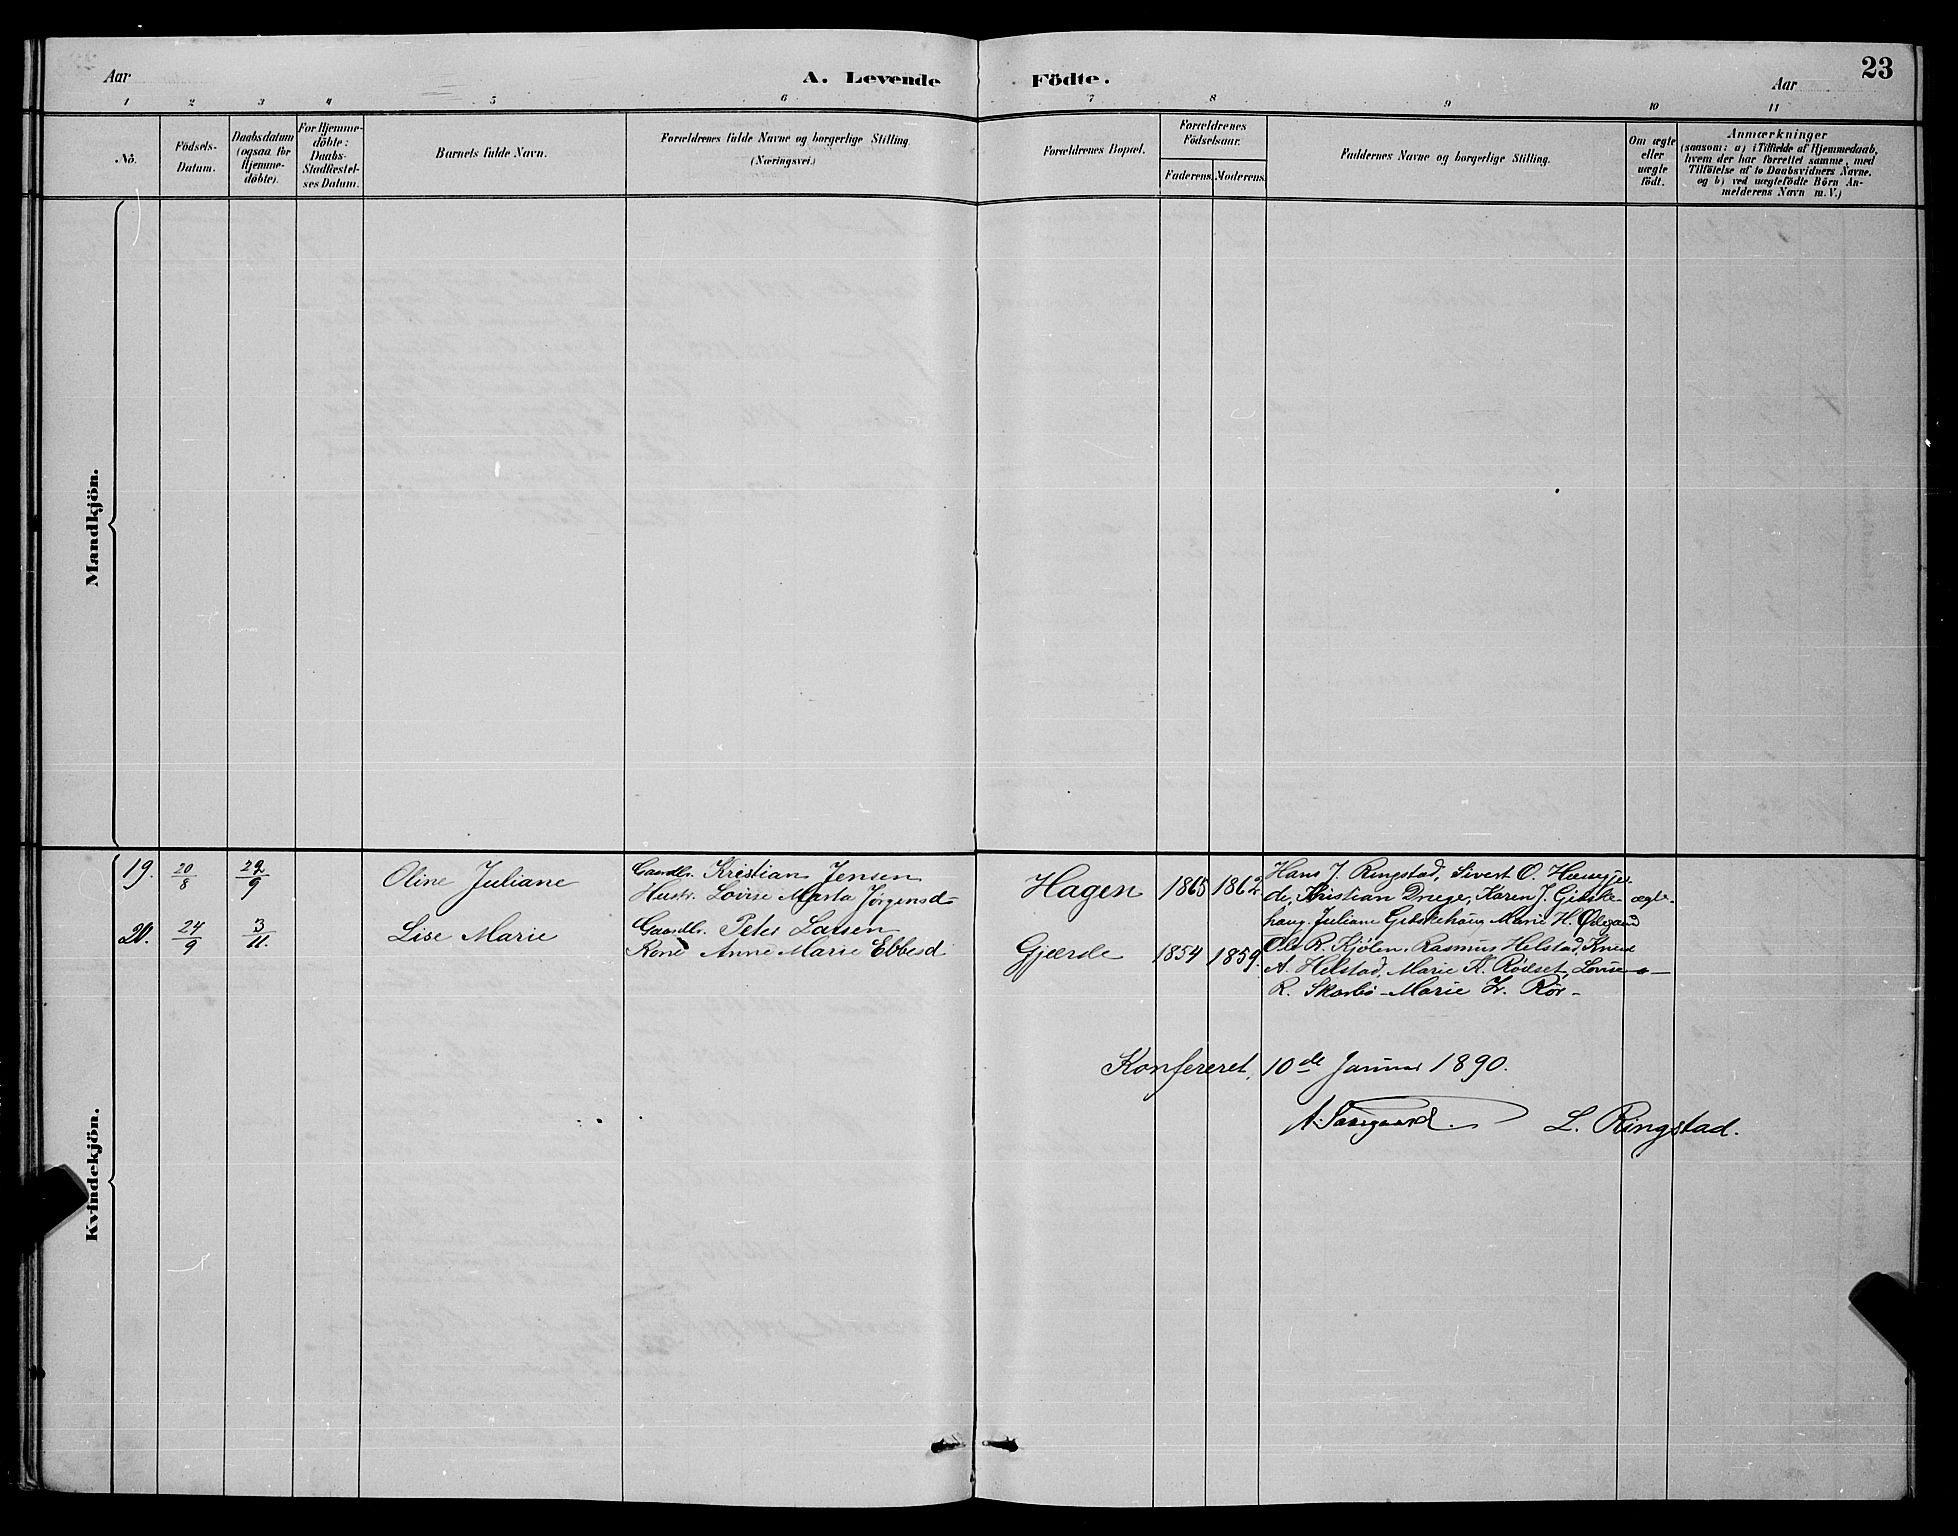 23
Aar
A. Levende Födte.
Aar
1 2 3 4 5 6 7 8 9 10 11
No.
Födsels-
Datum.
Daabsdatum
(ogsaa for
Hjemme-
döbte).
For Hjemme-
döbte:
Daabs-
Stadfæstel-
ses Datum.
Barnets fulde Navn.
Forældrenes fulde Navne og borgerlige Stilling
(Næringsvei.)
Forældrenes Bopæl.
Forældrenes
Födselsaar.
Faderens. Moderens.
Faddernes Navne og borgerlige Stilling.
Om ægte
eller
uægte
födt.
Anmærkninger
(saasom: a) i Tilfælde af Hjemmedaab,
hvem der har forrettet samme, med
Tilföielse af to Daabsvidners Navne.
og b) ved uægtefödte Börn An-
melderens Navn m. V.)
Mandkjön.
Kvindekjön.
19. 20/8 29/9
Oline Juliane
Gaardbr. Kristian Jensen
Hustr. Lovise Marta Jørgensd
Hagen 1865 1862
Hans J. Ringstad, Sivert O.
de, Kristian Drege, Karen J. Giske- ægte-
haug. Juliane Giskehaug Marie H. Ødegaard
20. 24/9 3/11.
Lise Marie
Gaardbr. Peter Larsen
Kone Anne Marie Ebbesd
Gjærde 1854 1859.
Ole R. Kjølen, Rasmus Helstad, Knut
A. Helstad, Marie K. Rødset, Lovise -"-
R. Skarbø - Marie Kr. Rør -
Konfereret, 10de Januar 1890.
L. Ringstad.